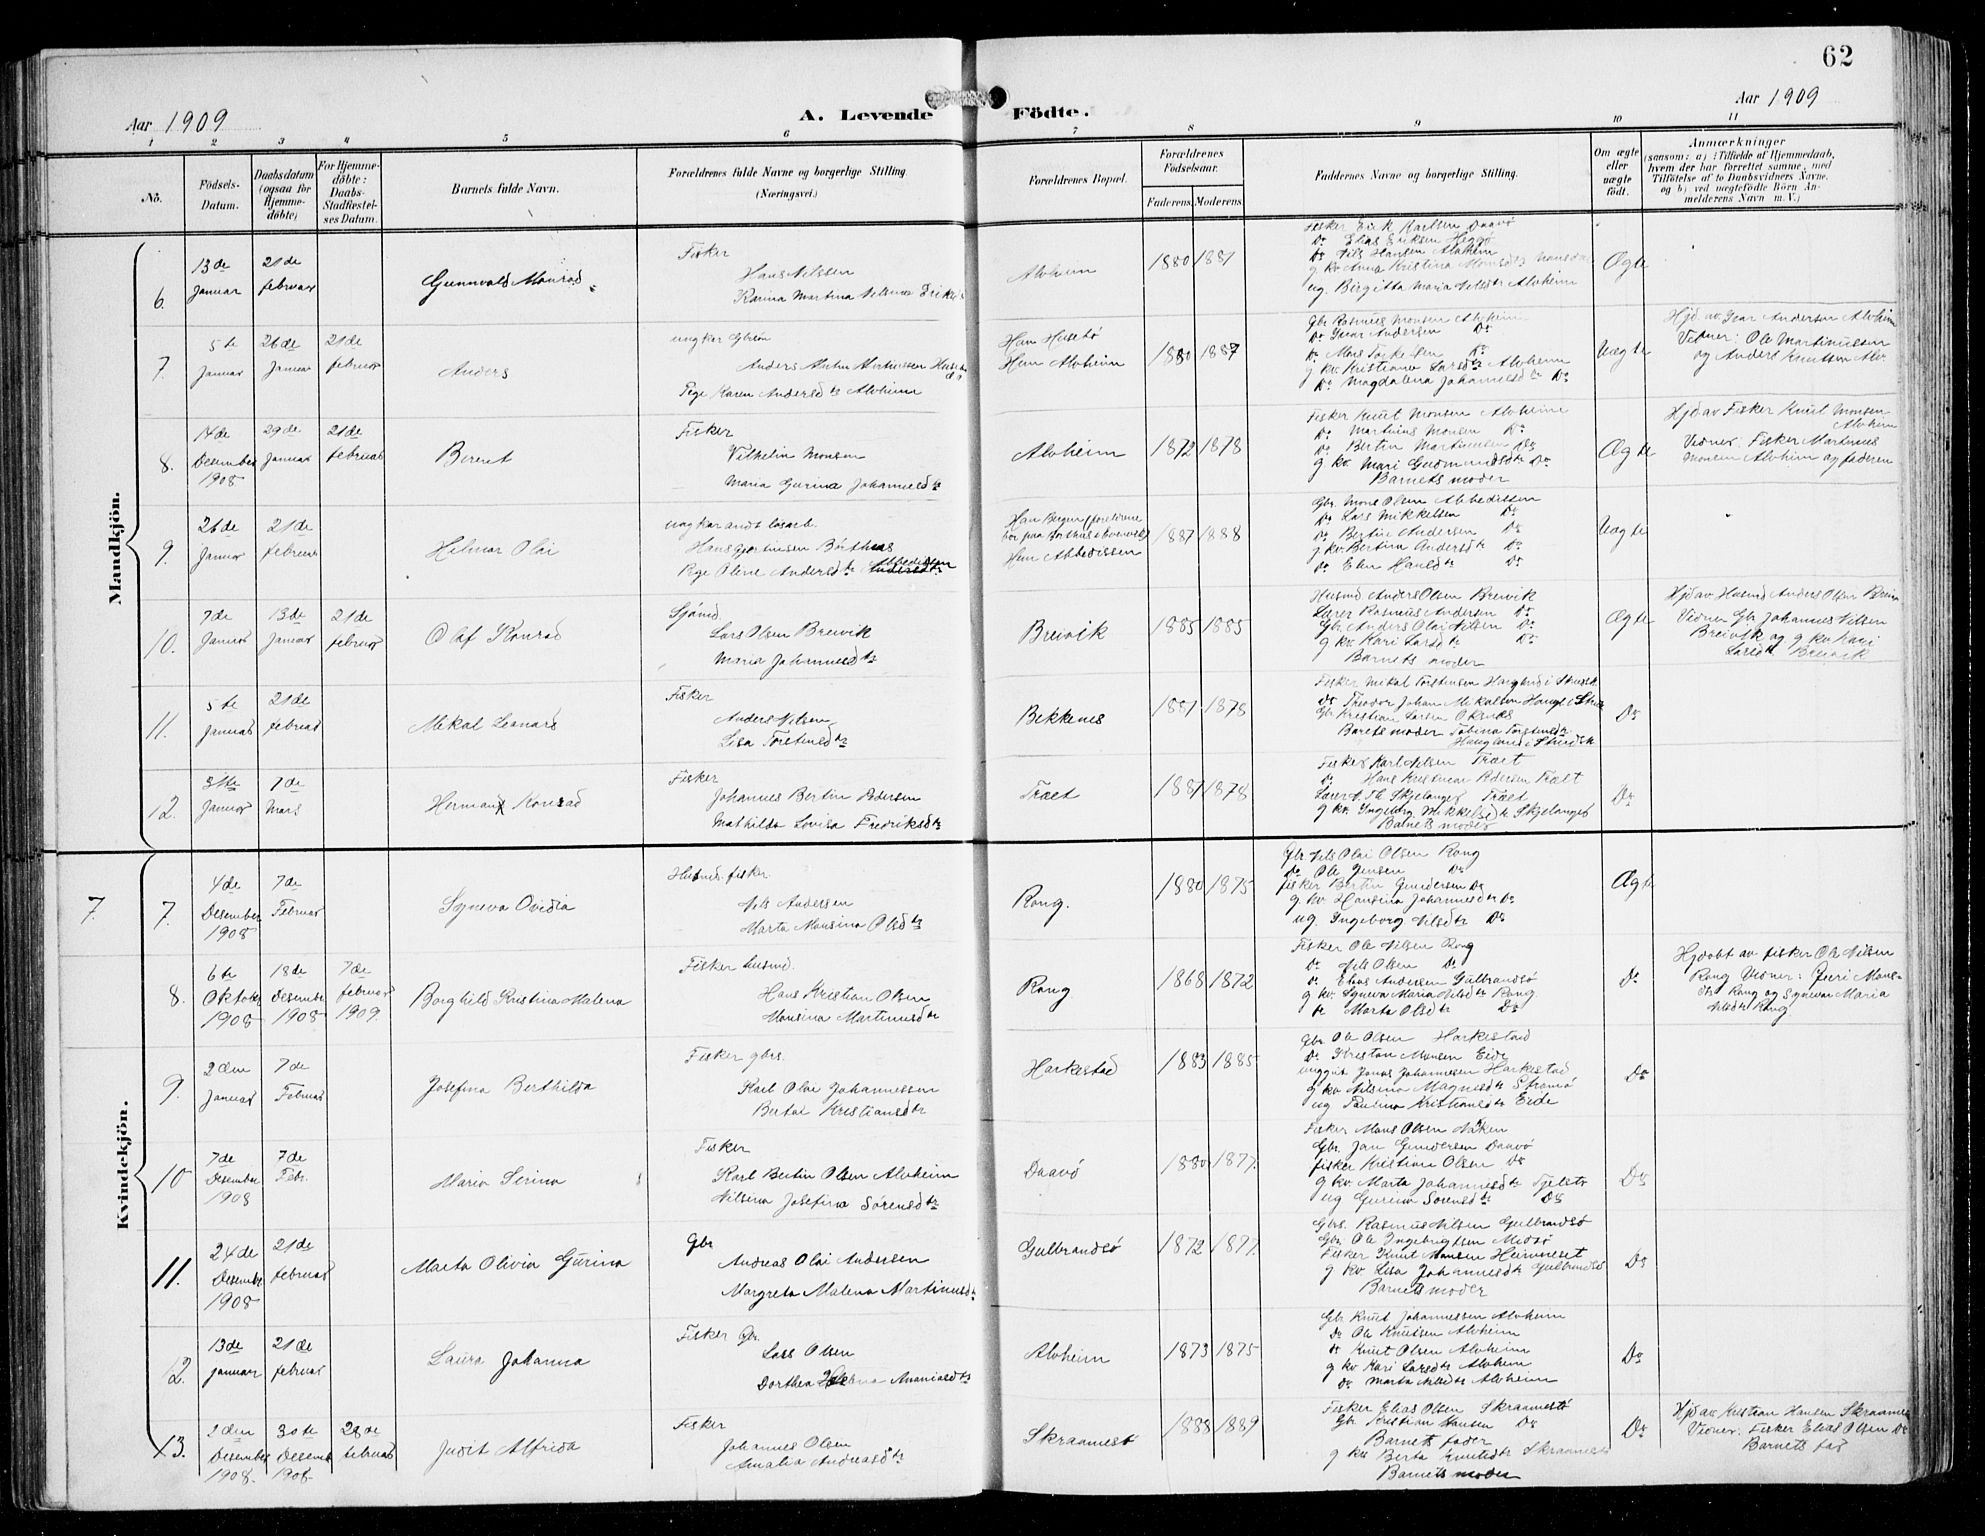 62
Aar 1909
A. Levende Födte.
Aar 1909
1 2 3 4 5 6 7 8 9 10 11
No.
Födsels-Datum.
Daabsdatum (ogsaa for Hjemme-döbte)
For Hjemme-döbte: Daabs-Stadfæstel-ses Datum.
Barnets fulde Navn.
Forældrenes fulde Navne og borgerlige Stilling
(Næringsvei.)
Forældrenes Bopæl.
Forældrenes Födselsaar.
Faderens. Moderens.
Faddernes Navne og borgerlige Stilling.
Om ægte eller uægte födt.
Anmærkninger
(saasom: a) i Tilfælde af Hjemmedaab,
hvem der har forrettet samme, med
Tilföielse af to Daabsvidners Navne,
og b) ved uægtefödte Börn An-
melderens Navn m. V.)
Mandkjön.
6. 13de Januar 21de februar
Gunnvald Monrad
Fisker
Hans Nilssen
Karina Martina Nilsine
Alvheim 1880 1881
Fisker Erik Karlsen Daavø
Do Elias Eriksen Hegø
Do Nils Hansen Alvheim
g kv. Anna Kristina Monsdtr
ug. Birgitta Maria Nilsdtr Alvheim
Ægte
7. 5te Januar 26de Januar 21de februar
Anders
ungkar Gbrsøn
Anders Martinussen
Pige Karen Andersdtr Alvheim
Han Husebø
Hun Alvheim
1880 1887
Gbr Rasmus Monsen Alvheim
Do Ivar Andersen Do
Do Mons Torkelsen Do
g kv. Kristiane Larsdtr Alvheim
Do Magdalena Johannesdtr Do
Uægte
Hjd av Ivar Andersen Alvheim
Vidner: Ole Martinussen
og Anders Knutsen Alv.
8. 14de Desember 1908 29de Januar 21de februar
Berent
Fisker
Vilhelm Monsen
Maria Gurina Johannesdtr
Alvheim 1872 1878
Fisker Knut Monsen Alvheim
Do Martinus Monsen Do
Do Bertin Martinusen Do
g kv. Mari Gudmundsdtr Do
Barnets moder
Ægte
Hjd av Fisker Knut Monsen
Alvheim
Vidner. Fisker Martinus
Monsen Alvheim og faderen
9. 26de Januar 21de februar
Hilmar Olai
ungkar andt losarb.
Hans Gjertinsen Börthus
Pige Oline Andersdtr Abbedissen
Han Bergen (forældrene
bor paa
Hun Abbedissen
1887 1888
Gbr. Mons Olsen Abbedissen
Do Lars Mikkelsen Do
Do Bertin Andersen Do
g kv. Bertina Andersdtr Do
Do Elen Hansdtr Do
Uægte
10. 7de Januar 13de Januar 21de februar
Olaf Konrad
Sjömd.
Lars Olsen Breivik
Maria Johannesdtr
Breivik 1885 1885
Husmd Anders Olsen Breivik
Lærer Rasmus Andersen Do
Gbr Anders Olai Nilsen Do
g kv. Kari Larsdtr Do
Barnets moder
Ægte
Hjd av Husmd Anders Olsen Breiv
Vidner Gbr Johannes Nilsen
Breivik og g kv Kari
Larsdtr Breivik
11. 5te Januar 21de februar
Mekal Leonard
Fisker
Anders Nilsen
Lisa Torstensdtr
Bekkenes 1881 1878
Fisker Mekal Torstensen Haugland i
Do Theodor Johan Mikalsen
Gbr Kristian Larsen Oknæs
Barets moder Tobina Torstensdtr
Haugland i
Do
12. 31te Januar 7de Mars
Herman Konrad
Fisker
Johannes Bertin Pedersen
Mathilda Lovisa Fredriksdtr
Træet 1881 1878
Fisker Karl Nilsen Træet
Do Hans Kristian Pedersen Træet
Lærer A. Th. Skjelanger Træet
g kv. Ingeborg Mikkelsdtr Skjelanger
Barnets moder
Do
Kvindekjön.
7. 7. 4de Desember 1908 7de Februar
Syneva Ovidia
Husmd. fisker
Nils Andersen
Marta Monsina Olsdtr
Rong. 1880 1875
Gbr. Nils Olai Olsen Rong
Do Ole Jensen Do
fisker Bertin Gundersen Do
g kv. Hansina Johannesdtr Do
ug. Ingeborg Nilsdtr Do
Ægte
8. 6te Oktober 1908 18de Desember 1908 7de februar 1909.
Borghild Kristina Malena
Fisker husmd.
Hans Kristian Olsen
Monsina Martinusdtr
Rong 1868 1872
Fisker Ole Nilsen Rong
Do Nils Olsen Do
Do Elias Andersen Gulbrandsø
g kv. Syneva Maria Nilsdtr Rong.
Do Marta Olsdtr Do
Do
Hjdøbt av fisker Ole Nilsen
Rong Vidner: Guri Mons-
dtr Rong og Syneva Maria
Nilsdtr Rong
9. 2den Januar 7de Februar
Josefina Berthilda
Fisker gbrs.
Karl Olai Johannessen
Bertai Kristiansdtr
Harkestad 1883 1885
Gbr Ole Olsen Harkestad
Do Kristian Monsen Eide
unggut Jonas Johannesen Harkestad
g kv Nilsina Magnesdtr Strømø
ug Paulina Kristiansdtr Eide
Do
10 7de Desember 1908 7de Febr.
Maria Serina
Fisker
Karl Bertin Olsen Alvheim
Nilsina Josefina Sørensdtr
Daavø 1880 1877.
Fisker Mons Olsen Naken
Gbr. Jan Gundersen Daavø
fisker Kristian Olsen Do
g kv. Marta Johannesdtr
ug Gurina Sorensdtr Do
Do
11. 24de Desember 1908 21de februar
Marta Olivia Gurina
Gbr
Andreas Olai Andersen
Margreta Malena Martinusdtr
Gulbrandsø 1872 1877.
Gbr. Rasmus Nilsen Gulbrandsø
Gbr. Ole Ingebrigtsen Midsø
Fisker Knut Monsen
g kv. Lisa Johannesdtr Gulbrandsø
Barnets moder
Do
12. 13de januar 21de februar
Laura Johanna
Fisker Gbr.
Lars Olsen
Dorthea Ananiasdtr
Alvheim 1873 1875
Gbr Knut Johannessen Alvheim
Do Ole Knutsen Alvheim
Do Knut Olsen Alvheim
g kv Kari Larsdtr Alvheim
Do Marta Nilsdtr Alvheim
Do
13. 2den Desember 1908. 30te Desemb. 1908. 28de februar
Judit Alfrida
Fisker
Johannes Olsen
Amalia Andreasdtr
Skraamestø 1888 1889
Fisker Elias Olsen Skraamestø
Gbr Kristian Hansen Do
Barnets fader
g kv. Berta Knutsdtr Skraamestø
Barnets moder
Do
Hjd av Kristian Hansen Skraamestø
Vidner. Fisker Elias Olsen Do
Barnets far